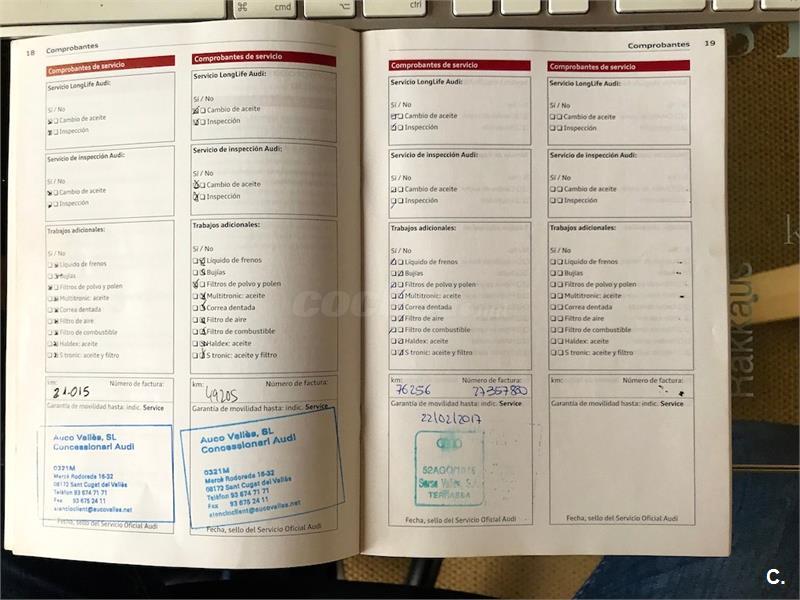 cmd
⌥
ctrl
18 Comprobantes
Comprobantes de servicio
Servicio LongLife Audi:
Sí / No
Cambio de aceite
Inspección
Servicio de inspección Audi:
Sí / No
Cambio de aceite
Inspección
Trabajos adicionales:
Sí / No
Líquido de frenos
Bujías
Filtros de polvo y polen
Multitronic: aceite
Correa dentada
Filtro de aire
Filtro de combustible
Haldex: aceite
S tronic: aceite y filtro
km: Número de factura:
21.015
Garantía de movilidad hasta: indic. Service
Auco Vallès, SL
Concessionari Audi
0321M
Mercè Rodoreda 16-32
08172 Sant Cugat del Vallès
Telèfon 93 674 71 71
Fax 93 675 24 11
atencioclient@aucovalles.net
Fecha, sello del Servicio Oficial Audi
Comprobantes de servicio
Servicio LongLife Audi:
Sí / No
Cambio de aceite
Inspección
Servicio de inspección Audi:
Sí / No
Cambio de aceite
Inspección
Trabajos adicionales:
Sí / No
Líquido de frenos
Bujías
Filtros de polvo y polen
Multitronic: aceite
Correa dentada
Filtro de aire
Filtro de combustible
Haldex: aceite
S tronic: aceite y filtro
km: Número de factura:
49205
Garantía de movilidad hasta: indic. Service
Auco Vallès, SL
Concessionari Audi
0321M
Mercè Rodoreda 16-32
08172 Sant Cugat del Vallès
Telèfon 93 674 71 71
Fax 93 675 24 11
atencioclient@aucovalles.net
Fecha, sello del Servicio Oficial Audi
Comprobantes 19
Comprobantes de servicio
Servicio LongLife Audi:
Sí / No
Cambio de aceite
Inspección
Servicio de inspección Audi:
Sí / No
Cambio de aceite
Inspección
Trabajos adicionales:
Sí / No
Líquido de frenos
Bujías
Filtros de polvo y polen
Multitronic: aceite
Correa dentada
Filtro de aire
Filtro de combustible
Haldex: aceite
S tronic: aceite y filtro
km: Número de factura:
76256 27357880
Garantía de movilidad hasta: indic. Service
22/02/2017
TERRASSA
Fecha, sello del Servicio Oficial Audi
Comprobantes de servicio
Servicio LongLife Audi:
Sí / No
Cambio de aceite
Inspección
Servicio de inspección Audi:
Sí / No
Cambio de aceite
Inspección
Trabajos adicionales:
Sí / No
Líquido de frenos
Bujías
Filtros de polvo y polen
Multitronic: aceite
Correa dentada
Filtro de aire
Filtro de combustible
Haldex: aceite
S tronic: aceite y filtro
km: Número de factura:
Garantía de movilidad hasta: indic. Service
Fecha, sello del Servicio Oficial Audi
Rakkaus
C.